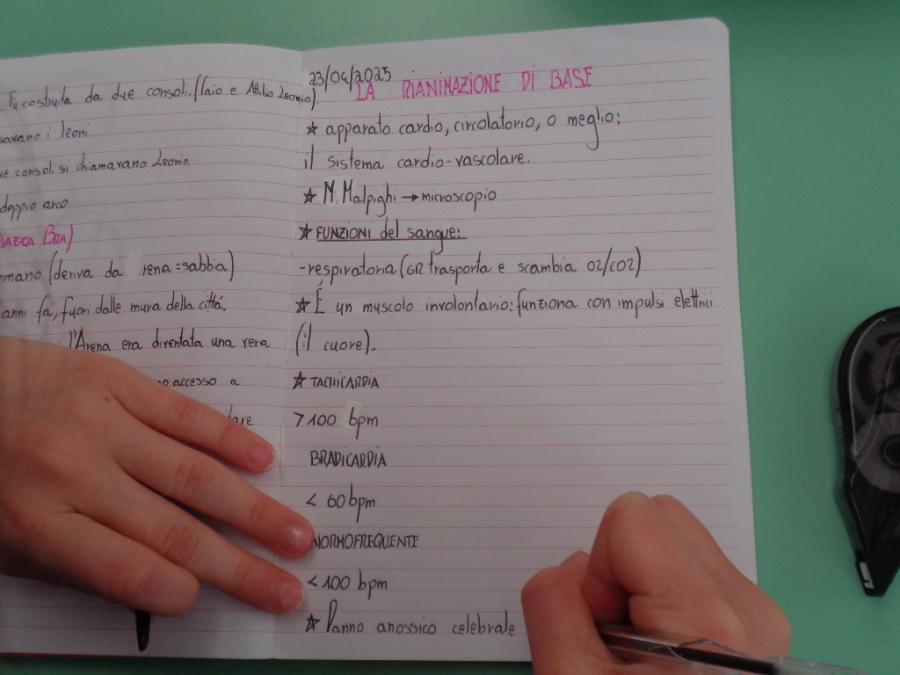 . Fu costruita da due consoli. (Caio e Attilio Leonio).
avano i leoni
ue consoli si chiamavano Leonio
doppio arco
IAZZA BRA)
omano (deriva da rena = sabbia)
anni fa, fuori dalle mura della città.
l'Arena era diventata una vera
no accesso a
lare
23/04/2025
LA RIANIMAZIONE DI BASE
★ apparato cardio, circolatorio, o meglio:
il sistema cardio-vascolare.
★ M. Malpighi → microscopio
★ FUNZIONI del sangue:
-respiratoria (GR trasporta e scambia O2/CO2)
★ È un muscolo involontario: funziona con impulsi elettrici
(il cuore).
★ TACHICARDIA
> 100 bpm
BRADICARDIA
< 60 bpm
NORMOFREQUENTE
< 100 bpm
★ Danno anossico celebrale